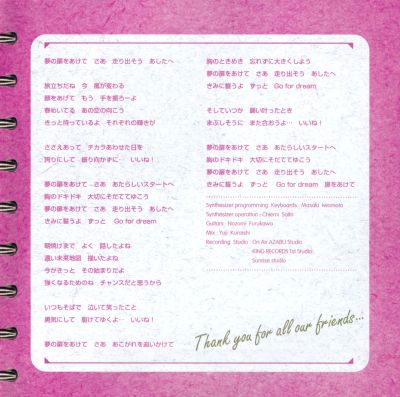 夢の扉をあけて　さあ　走り出そう　あしたへ
旅立ちだね　今　風が変わる
顔をあげて　もう　手を振ろーよ
春めいてる　あの空の向こう
きっと待っているよ　それぞれの輝きが
ささえあって　チカラあわせた日を
誇りにして　振り向かずに…　いいね！
夢の扉をあけて　さあ　あたらしいスタートへ
胸のドキドキ　大切にそだててゆこう
夢の扉をあけて　さあ　走り出そう　あしたへ
きみに誓うよ　ずっと　Go for dream
朝焼けまで　よく　話したよね
遠い未来地図　描いたよね
今がきっと　その始まりだよ
強くなるためのね　チャンスだと思うから
いつもそばで　泣いて笑ったこと
勇気にして　駆けてゆくよ…　いいね！
夢の扉をあけて　さあ　あこがれを追いかけて
胸のときめき　忘れずに大きくしよう
夢の扉をあけて　さあ　走り出そう　あしたへ
きみに誓うよ　ずっと　Go for dream
そしていつか　願い叶ったとき
まぶしそうに　また会おうよ…　いいね！
夢の扉をあけて　さあ　あたらしいスタートへ
胸のドキドキ　大切にそだててゆこう
夢の扉をあけて　さあ　走り出そう　あしたへ
きみに誓うよ　ずっと　Go for dream　扉をあけて
Synthesizer programming Keyboards : Masaki Iwamoto
Synthesizer operation : Chiemi Saito
Guitars : Nozomi Furukawa
Mix : Yuji Kuraishi
Recording Studio : On Air AZABU Studio
KING RECORDS 1st Studio
Sunrise studio
Thank you for all our friends...